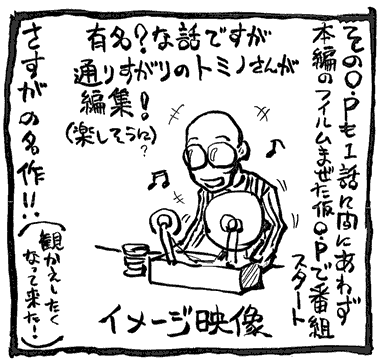 そのO.Pも1話に間にあわず
本編のフイルムまぜた仮O.Pで番組
スタート
有名？な話ですが
通りすがりのトミノさんが
編集！
(楽しそうに)?
イメージ映像
さすがの名作!!
(観かえしたく
なって来た！)